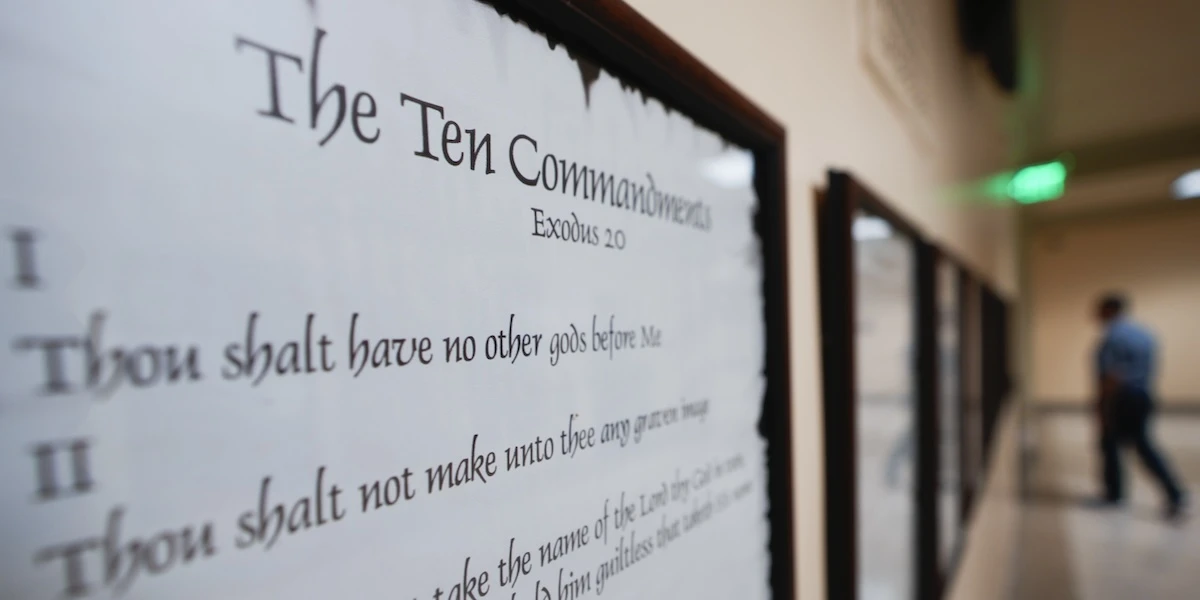 The Ten Commandments
Exodus 20
I
Thou shalt have no other gods before Me
II
Thou shalt not make unto thee any graven image
take the name of the Lord thy God in vain
him guiltless that taketh His name